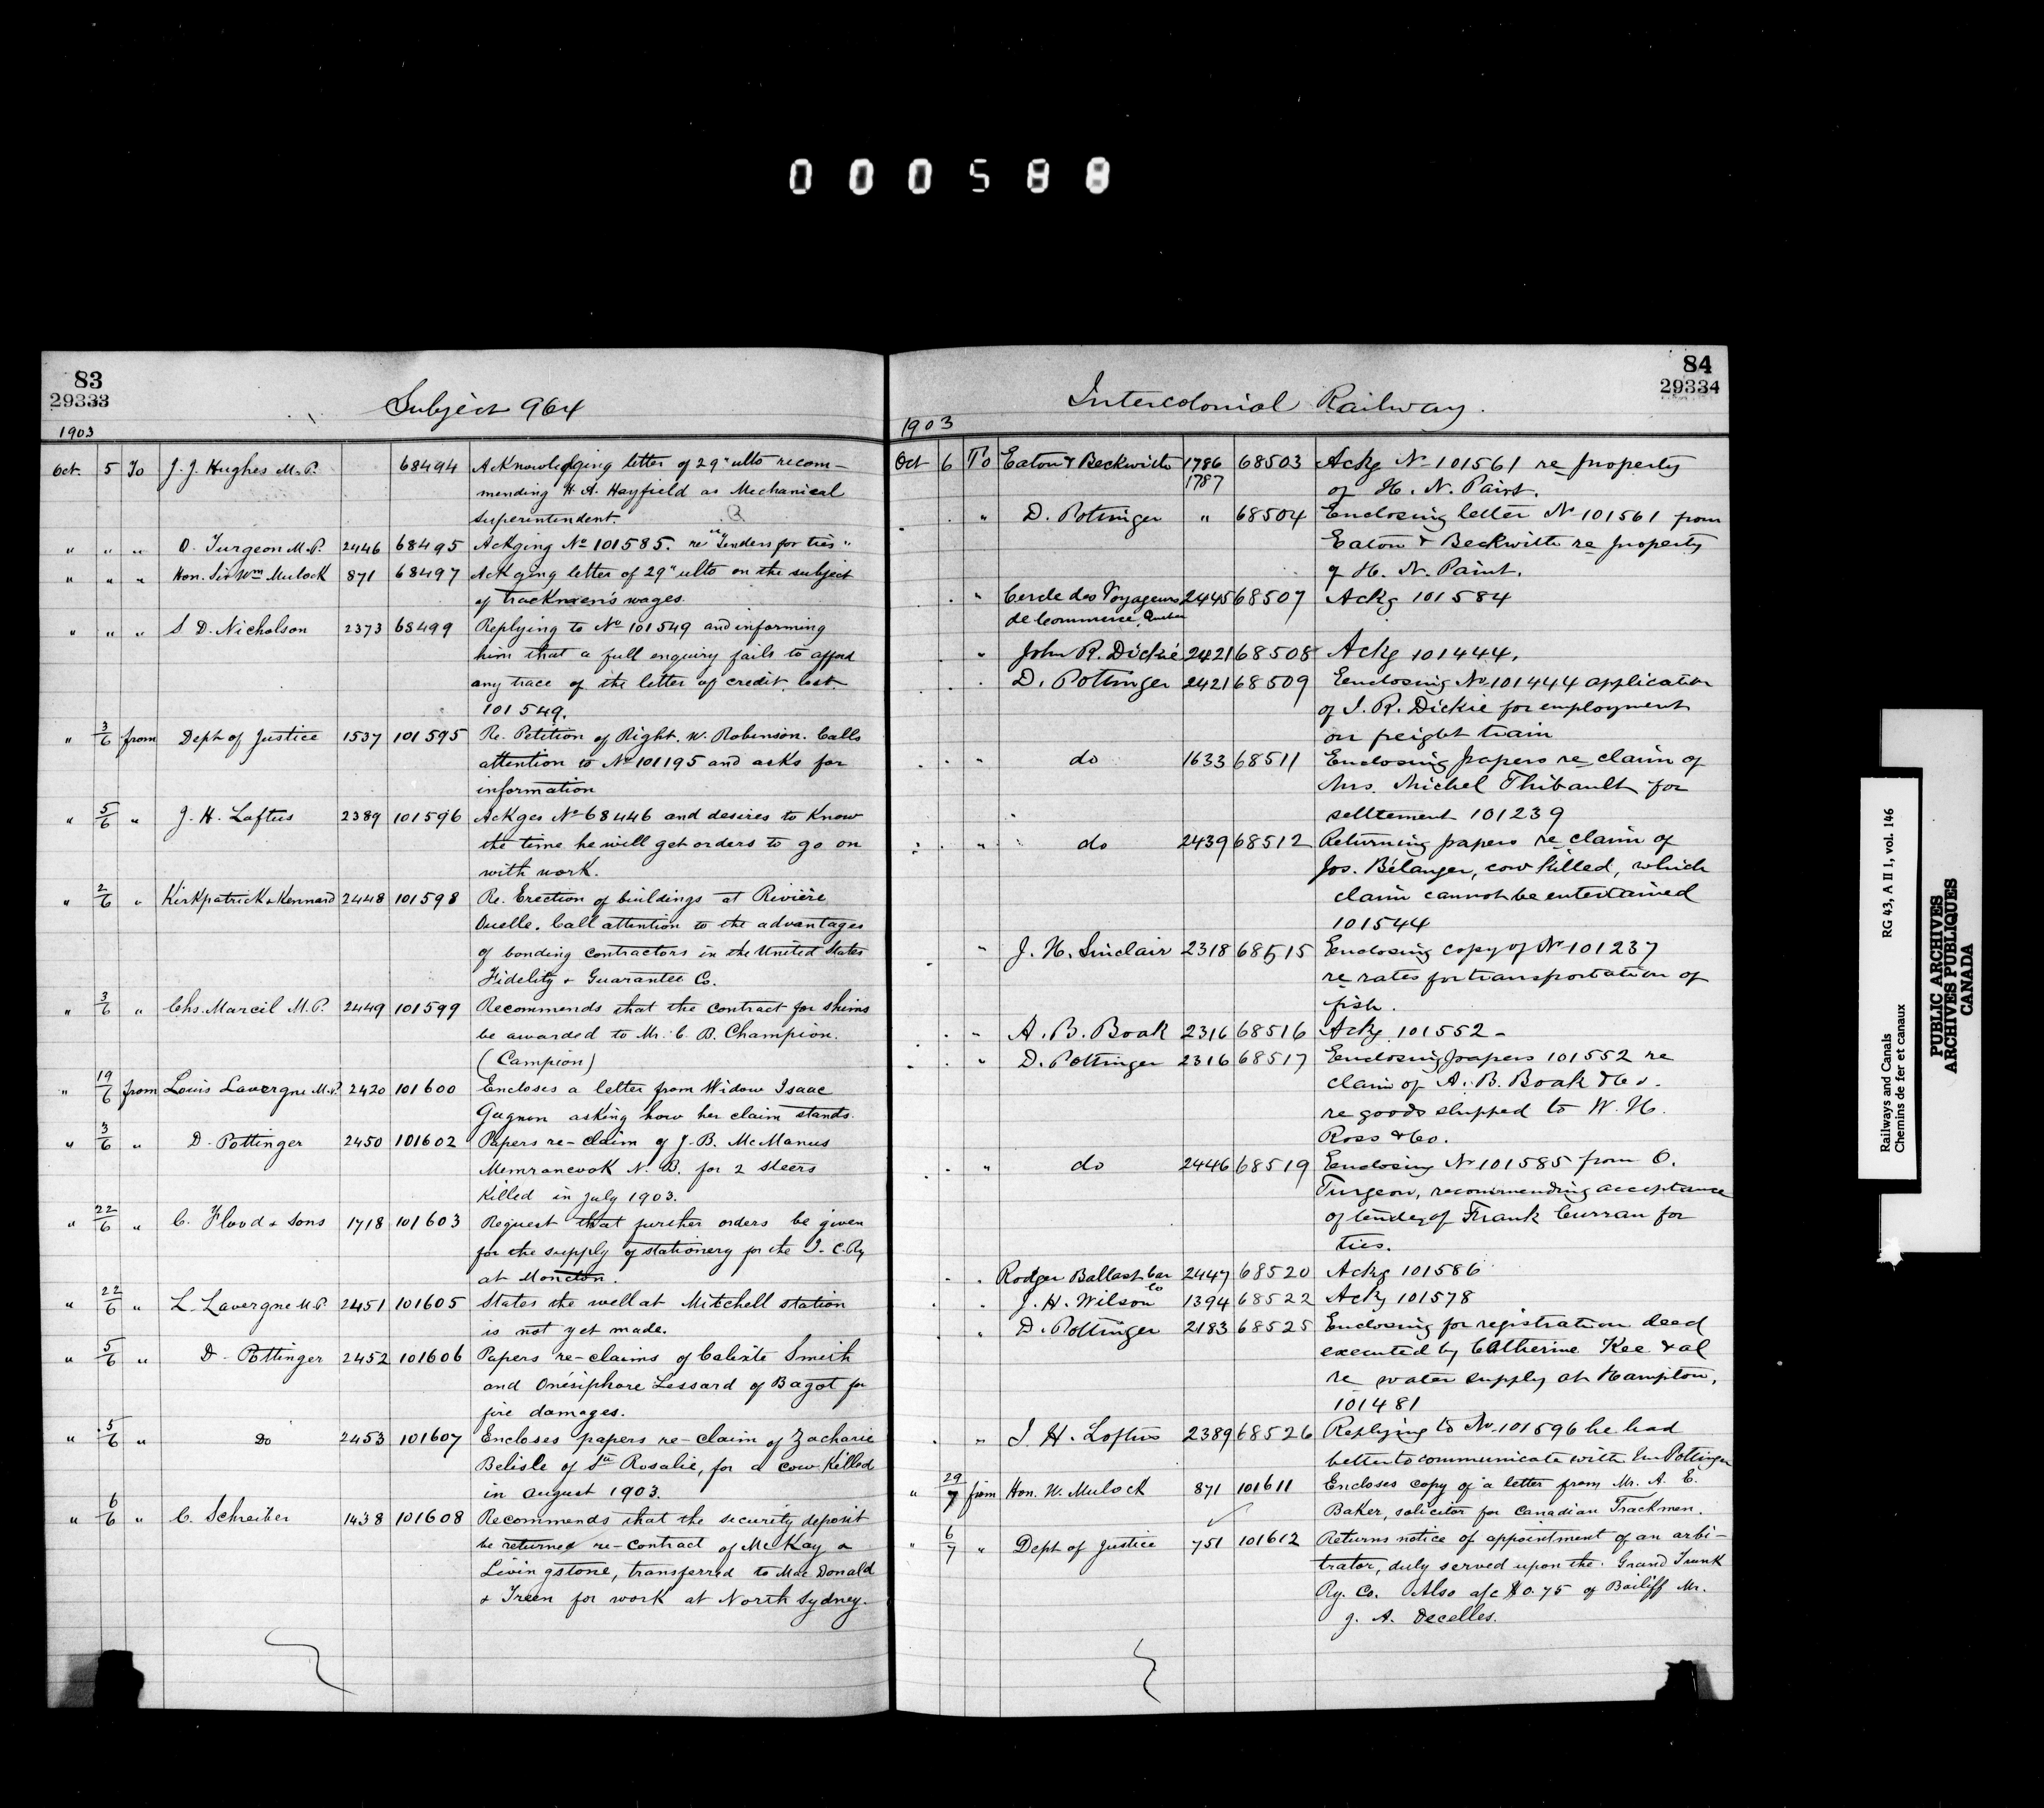 000588
83
29333
Subject 964
1903
Oct. 5 To J. J. Hughes M.P. 68494 Acknowledging letter of 29" ulto recom-
mending H. A. Hayfield as Mechanical
superintendent.
" " " O. Turgeon M.P. 2446 68495 Ackging No 101585. re "Tenders for ties"
" " " Hon. Sir Wm Mulock 871 68497 Ackging letter of 29" ulto on the subject
of trackmen's wages.
" " " S. D. Nicholson 2373 68499 Replying to No 101549 and informing
him that a full enquiry fails to afford
any trace of the letter of credit lost.
101549.
" 3/6 from Dept of Justice 1537 101595 Re. Petition of Right. W. Robinson. Calls
attention to No 101195 and asks for
information
" 5/6 " J. H. Loftus 2389 101596 Ackges No 68446 and desires to know
the time he will get orders to go on
with work.
" 2/6 " Kirkpatrick & Kennard 2448 101598 Re. Erection of buildings at Rivière
Ouelle. Call attention to the advantages
of bonding contractors in the United States
Fidelity & Guarantee Co.
" 3/6 " Chs. Marcil M.P. 2449 101599 Recommends that the contract for shims
be awarded to Mr. C. B. Champion.
(Campion)
" 19/6 from Louis Lavergne M.P. 2420 101600 Encloses a letter from Widow Isaac
Gagnon asking how her claim stands.
" 3/6 " D. Pottinger 2450 101602 Papers re-claim of J. B. McManus
Memramcook N. B. for 2 steers
killed in July 1903.
" 22/6 " C. Flood & Sons 1718 101603 Request that further orders be given
for the supply of stationery for the I. C. Ry
at Moncton.
" 22/6 " L. Lavergne M.P. 2451 101605 States the well at Mitchell station
is not yet made.
" 5/6 " D. Pottinger 2452 101606 Papers re-claims of Calixte Smith
and Onésiphore Lessard of Bagot for
fire damages.
" 5/6 " Do 2453 101607 Encloses papers re-claim of Zacharie
Belisle of Ste Rosalie, for a cow killed
in August 1903.
" 6/6 " C. Schreiber 1438 101608 Recommends that the security deposit
be returned re-contract of McKay &
Livingstone, transferred to MacDonald
& Treen for work at North Sydney.
84
29334
Intercolonial Railway.
1903
Oct 6 To Eaton & Beckwith 1786 68503 Ackg No 101561 re property
1787 of H. N. Paint.
" D. Pottinger " 68504 Enclosing letter No 101561 from
Eaton & Beckwith re property
of H. N. Paint.
" Cercle des Voyageurs 2445 68507 Ackg 101584
de Commerce, Quebec
" John R. Dickie 2421 68508 Ackg 101444.
" D. Pottinger 2421 68509 Enclosing No 101444 application
of J. R. Dickie for employment
on freight train
" do 1633 68511 Enclosing papers re claim of
Mrs. Michel Thibault for
selltement 101239
" do 2439 68512 Returning papers re claim of
Jos. Bélanger, cow killed, which
claim cannot be entertained
101544
" J. H. Sinclair 2318 68515 Enclosing copy of No 101237
re rates for transportation of
fish.
" A. B. Boak 2316 68516 Ackg 101552 -
" D. Pottinger 2316 68517 Enclosing papers 101552 re
claim of A. B. Boak & Co.
re goods shipped to W. H.
Ross & Co.
" do 2446 68519 Enclosing No 101585 from O.
Turgeon, recommending acceptance
of tender of Frank Curran for
ties.
" Rodger Ballast Car 2447 68520 Ackg 101586
Co
" J. H. Wilson 1394 68522 Ackg 101578
" D. Pottinger 2183 68525 Enclosing for registration deed
executed by Catherine Kee & al
re water supply at Hampton,
101481
" J. H. Loftus 2389 68526 Replying to No 101596 he had
better to communicate with Mr Pottinger
" 29/7 from Hon. W. Mulock 871 101611 Encloses copy of a letter from Mr. A. E.
Baker, solicitor for Canadian Trackmen.
" 6/7 " Dept of Justice 751 101612 Returns notice of appointment of an arbi-
trator, duly served upon the Grand Trunk
Ry. Co. Also a/c $0.75 of Bailiff Mr.
J. A. Decelles.
Railways and Canals RG 43, A II 1, vol. 146
Chemins de fer et canaux
PUBLIC ARCHIVES
ARCHIVES PUBLIQUES
CANADA